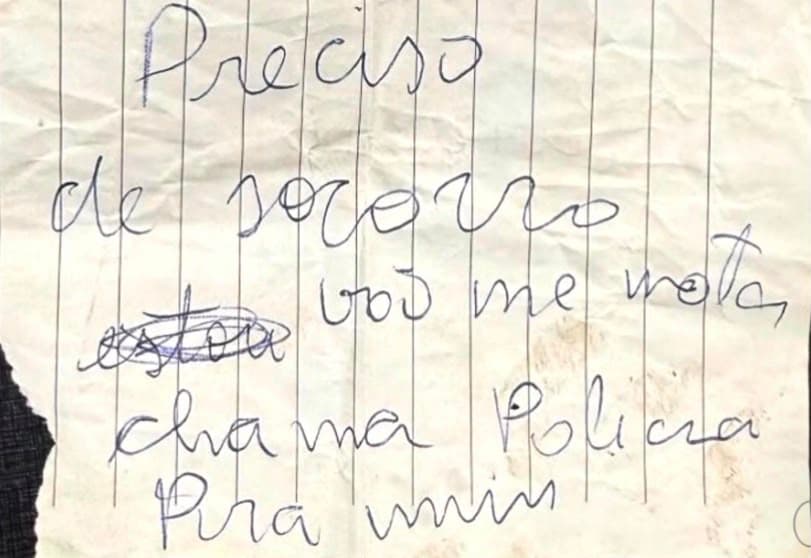 Preciso
de socorro
estou voõ me mata,
chama Policia
Pra mim